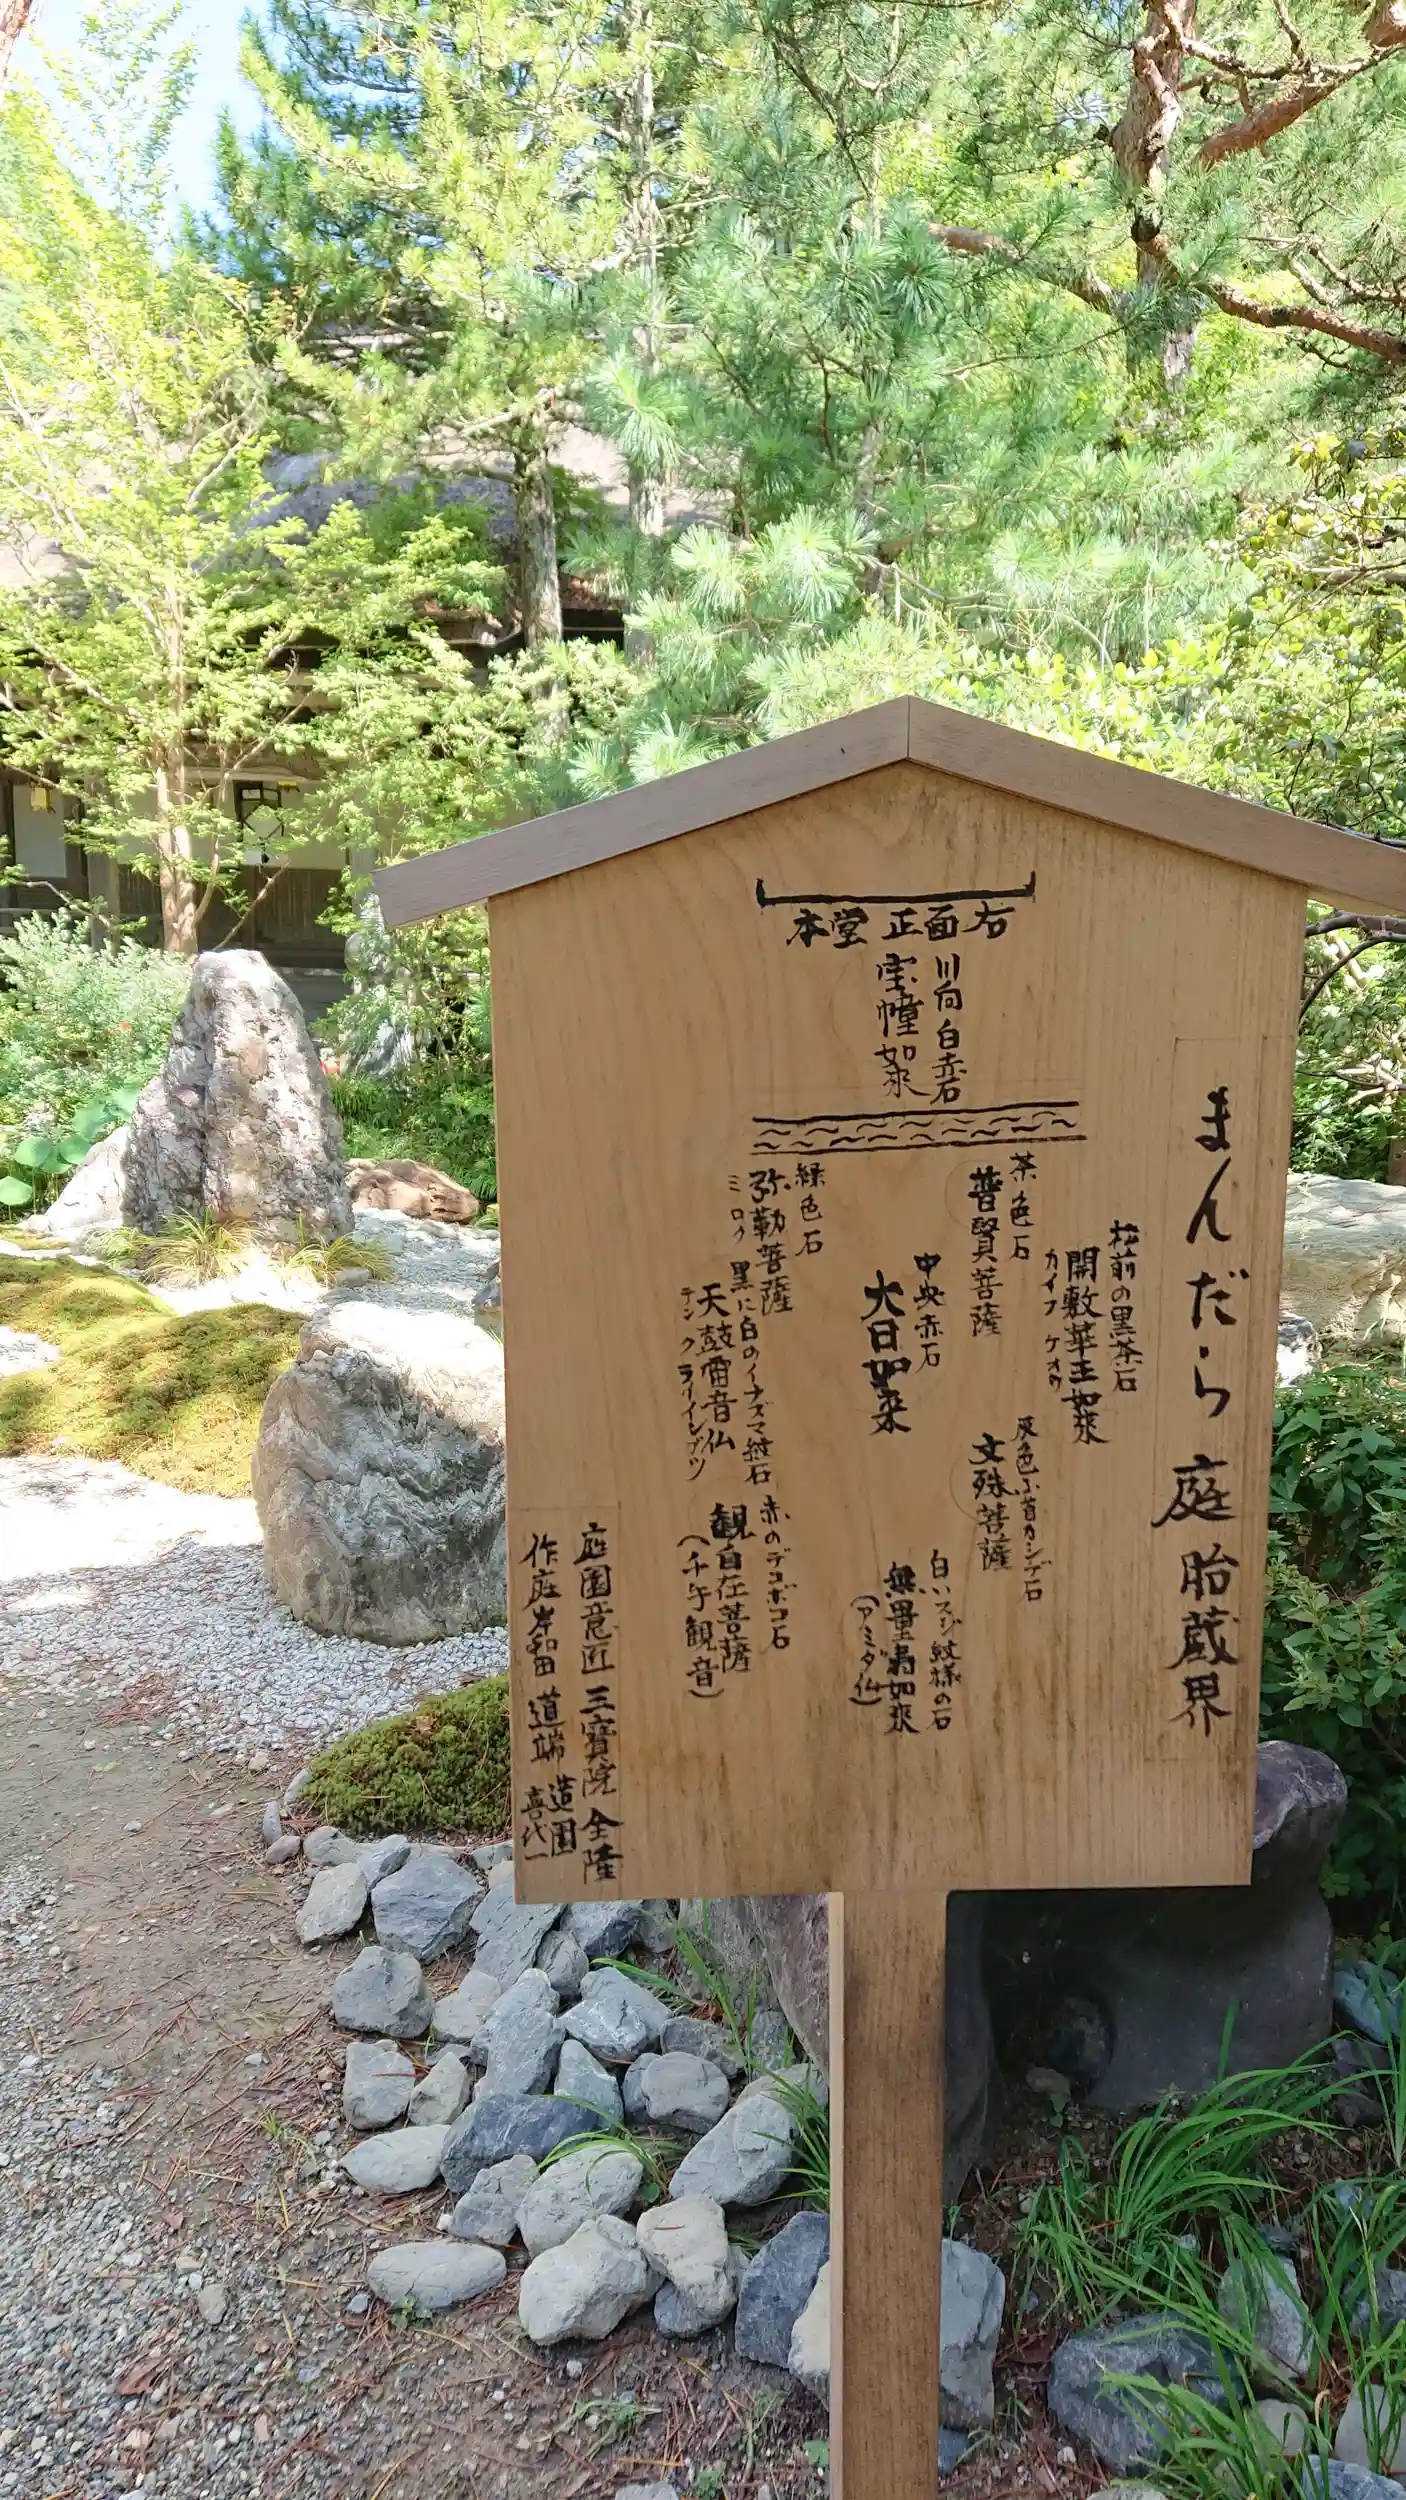 まんだら庭 胎蔵界
本堂 正面 右
川向 白赤石
宝幢如来
茶色石
普賢菩薩
松前の黒茶石
開敷華王如来
カイフ ケオウ
中央赤石
大日如来
緑色石
弥勒菩薩
ミロク
黒に白のイナズマ紋石
天鼓雷音仏
テン クライインブツ
灰色
文殊菩薩
白いスジ紋様の石
無量寿如来
(アミダ仏)
赤のデコボコ石
観自在菩薩
(千手観音)
庭園意匠 三寳院 全隆
作庭 岸和田 道端 造園
喜代一